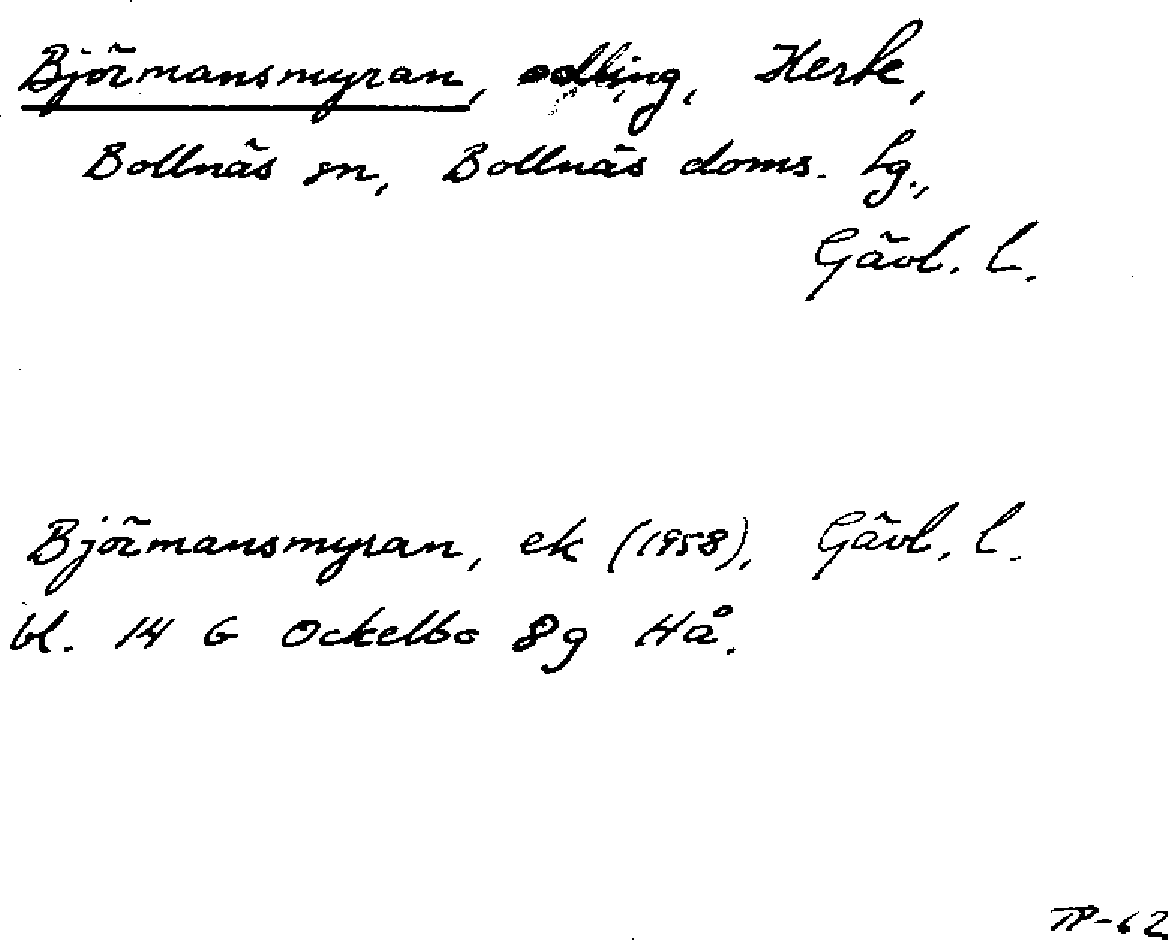 Björmansmyran, odling, Herte,
Bollnäs sn, Bollnäs doms. lg.,
Gävl. l.
Björmansmyran, ek (1958), Gävl. l.
bl. 14 G Ockelbo 8g Hå.
TP-62